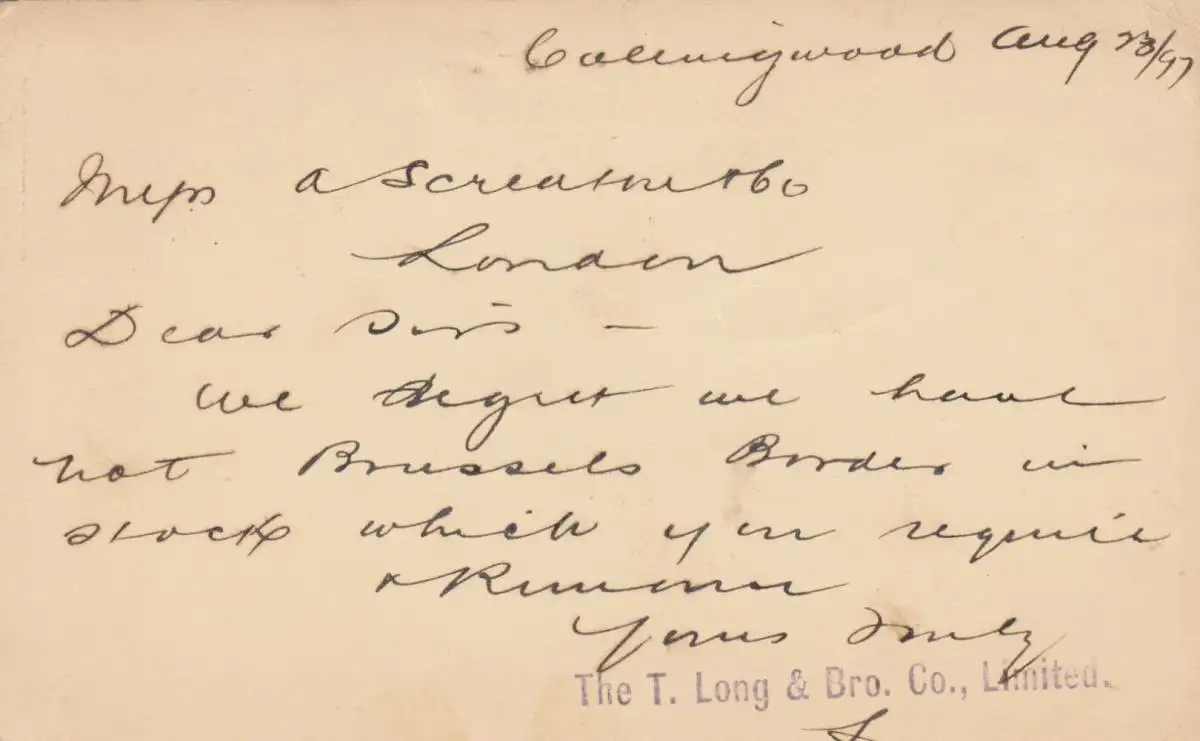 Collingwood Aug 23/97
Mess A Screaton & Co
London
Dear Sirs —
We regret we have
not Brussels Border in
stock which you require
& Remain
Yours Truly
The T. Long & Bro. Co., Limited.